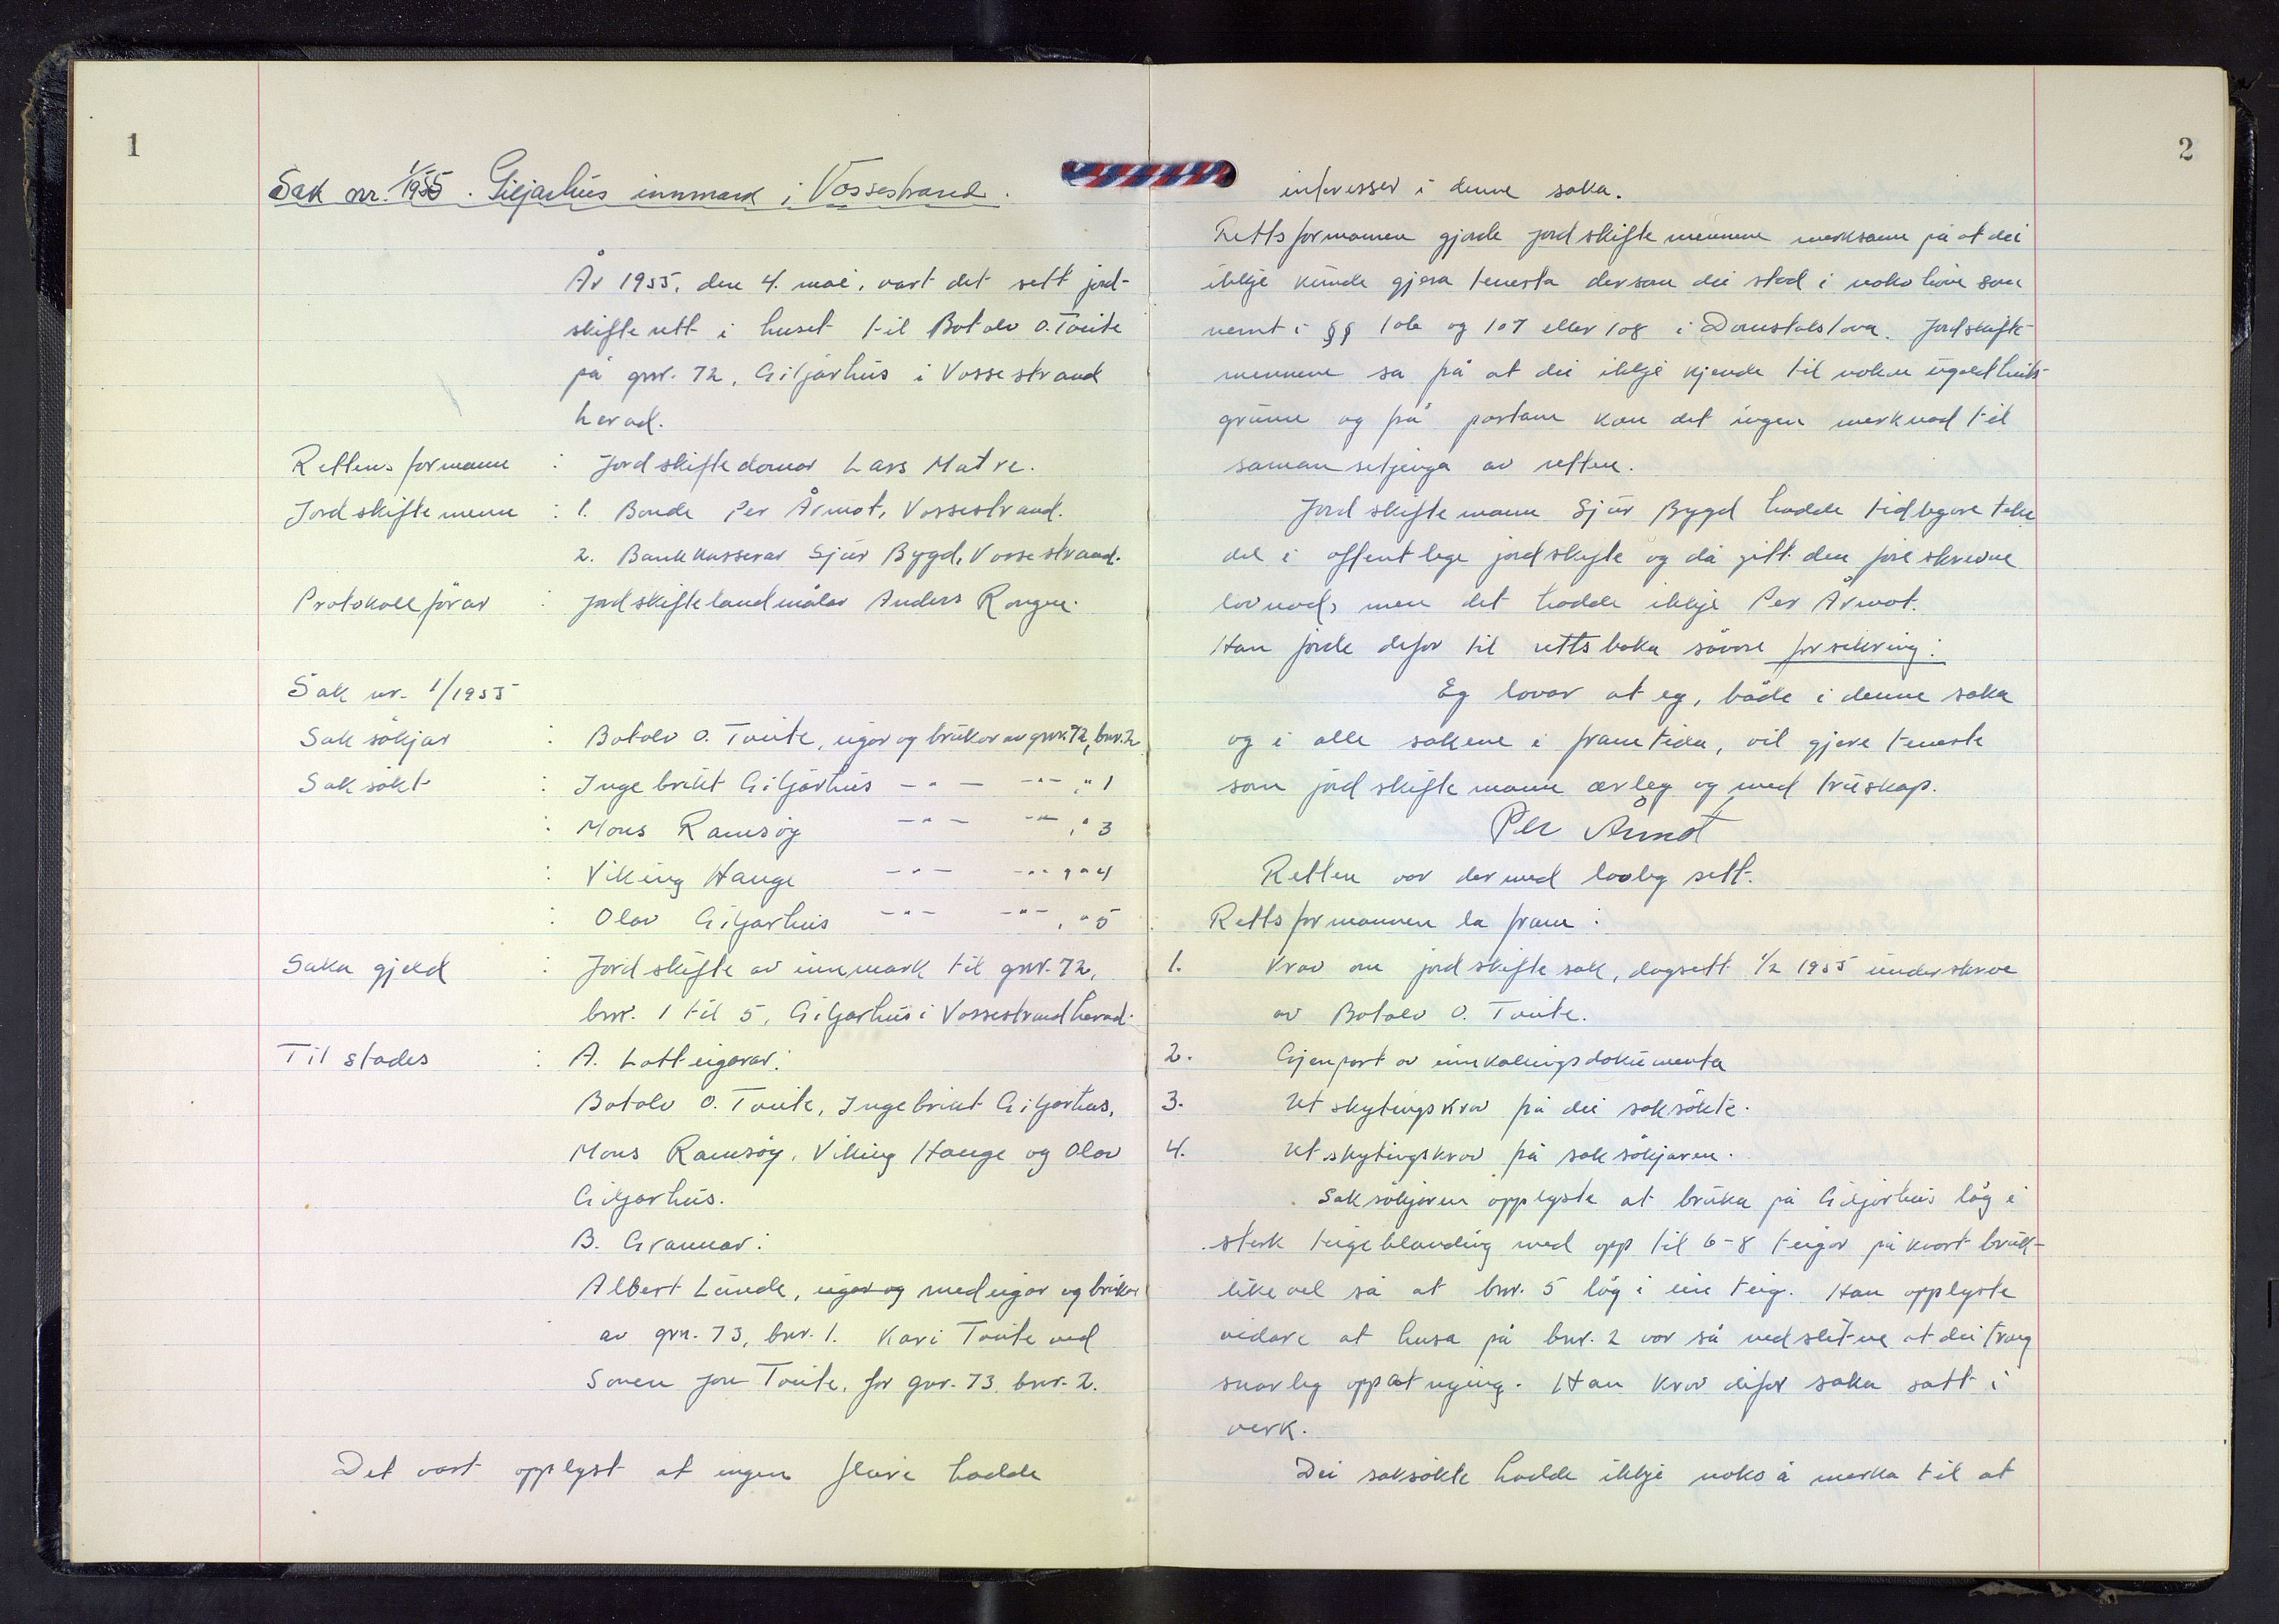 1
Sak nr. 1/1955. Giljarhus innmark i Vossestrand.
År 1955, den 4. mai, vart det sett jord-
skifterett i huset til Botolv O. Tvite
på gnr. 72, Giljarhus i Vossestrand
herad.
Rettens formann : Jordskiftedomar Lars Matre.
Jordskiftemenn : 1. Bonde Per Årmot, Vossestrand.
2. Bankkasserar Sjur Bygd, Vossestrand.
Protokollførar : Jordskiftelandmålar Anders Rongen.
Sak nr. 1/1955
Saksökjar : Botolv O. Tvite, eigar og brukar av gnr. 72, bnr. 2
Saksökt : Ingebrikt Giljarhus —"— —"— , " 1
: Mons Ramsøy —"— —"— , " 3
: Viking Hauge —"— —"— , " 4
: Olav Giljarhus —"— —"— , " 5
Saka gjeld : Jordskifte av innmark til gnr. 72,
bnr. 1 til 5, Giljarhus i Vossestrand herad.
Til stades : A. Lotteigarar:
Botolv O. Tvite, Ingebrikt Giljarhus,
Mons Ramsøy, Viking Hauge og Olav
Giljarhus.
B. Grannar:
Albert Lunde, eigar og medeigar og brukar
av gnr. 73, bnr. 1. Kari Tvite ved
sonen Jon Tvite, for gnr. 73, bnr. 2.
Det vart opplyst at ingen fleire hadde
2
interesser i denne saka.
Rettsformannen gjorde jordskiftemennene merksame på at dei
ikkje kunde gjera tenesta dersom dei stod i noko høve som
nemnt i §§ 106 og 107 eller 108 i Domstolslova. Jordskifte-
mennene sa frå at dei ikkje kjende til noken ugildheits-
grunn og frå partane kom det ingen merknad til
samansetjinga av retten.
Jordskiftemann Sjur Bygd hadde tidlegare teke
del i offentlege jordskifte og då gitt den föreskrevne
lovnad, men det hadde ikkje Per Årmot.
Han gjorde difor til rettsboka såvore forsikring:
Eg lovar at eg, både i denne saka
og i alle sakene i framtida, vil gjere teneste
som jordskiftemann ærleg og med truskap.
Per Årmot
Retten var dermed lovleg sett.
Rettsformannen la fram:
1. Krav om jordskiftesak, dagsett 1/2 1955 underskreve
av Botolv O. Tvite.
2. Gjenpart av innkalingsdokumenta
3. Utskytingskrav frå dei saksökte.
4. Utskytingskrav frå saksökjaren.
Saksökjaren opplyste at bruka på Giljarhus låg i
sterk teigeblanding med opp til 6-8 teigar på kvart bruk -
likevel så at bnr. 5 låg i ein teig. Han opplyste
vidare at husa på bnr. 2 var så nedslitne at dei trong
snarleg oppatnying. Han krov difor saka satt i
verk.
Dei saksökte hadde ikkje noko å merka til at